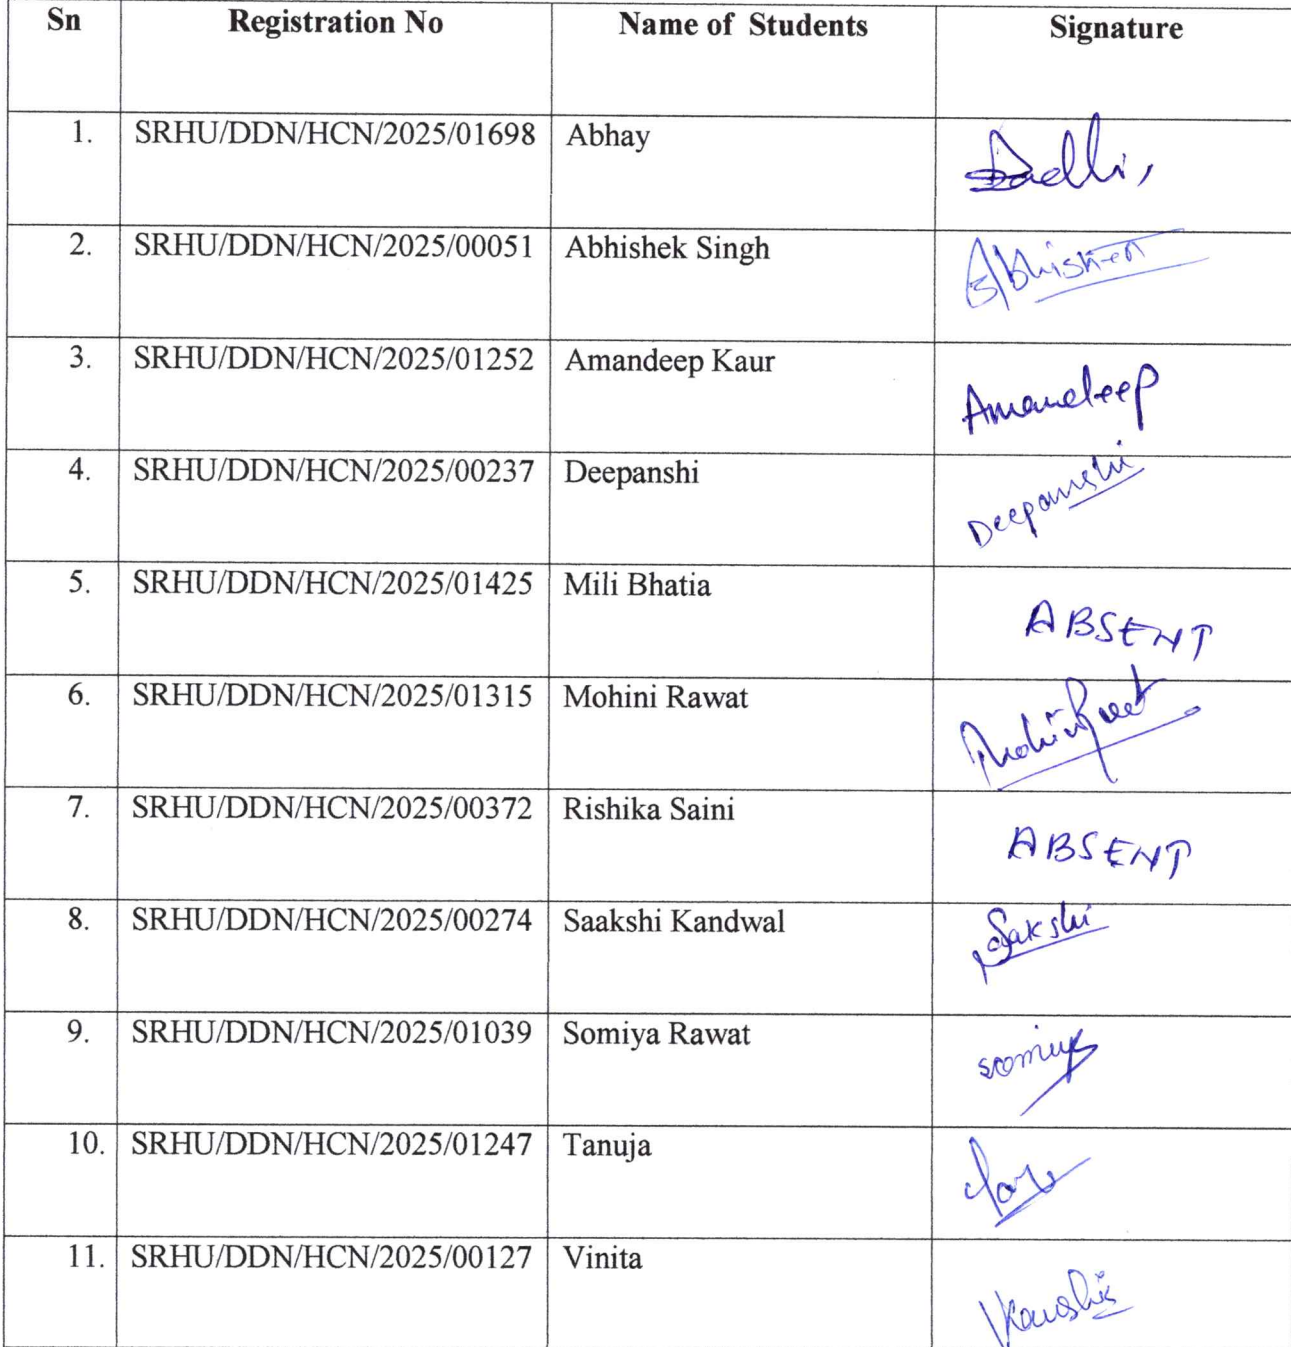 Sn Registration No Name of Students Signature
1. SRHU/DDN/HCN/2025/01698 Abhay
2. SRHU/DDN/HCN/2025/00051 Abhishek Singh
3. SRHU/DDN/HCN/2025/01252 Amandeep Kaur Amandeep
4. SRHU/DDN/HCN/2025/00237 Deepanshi Deepanshi
5. SRHU/DDN/HCN/2025/01425 Mili Bhatia ABSENT
6. SRHU/DDN/HCN/2025/01315 Mohini Rawat
7. SRHU/DDN/HCN/2025/00372 Rishika Saini ABSENT
8. SRHU/DDN/HCN/2025/00274 Saakshi Kandwal Sakshi
9. SRHU/DDN/HCN/2025/01039 Somiya Rawat
10. SRHU/DDN/HCN/2025/01247 Tanuja
11. SRHU/DDN/HCN/2025/00127 Vinita